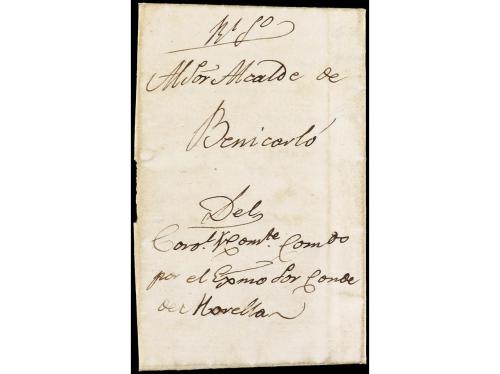 Rl So
Al Sor Alcalde de
Benicarló
Del
Corol. Comte. Comdo
por el Exmo Sor Conde
de Morella